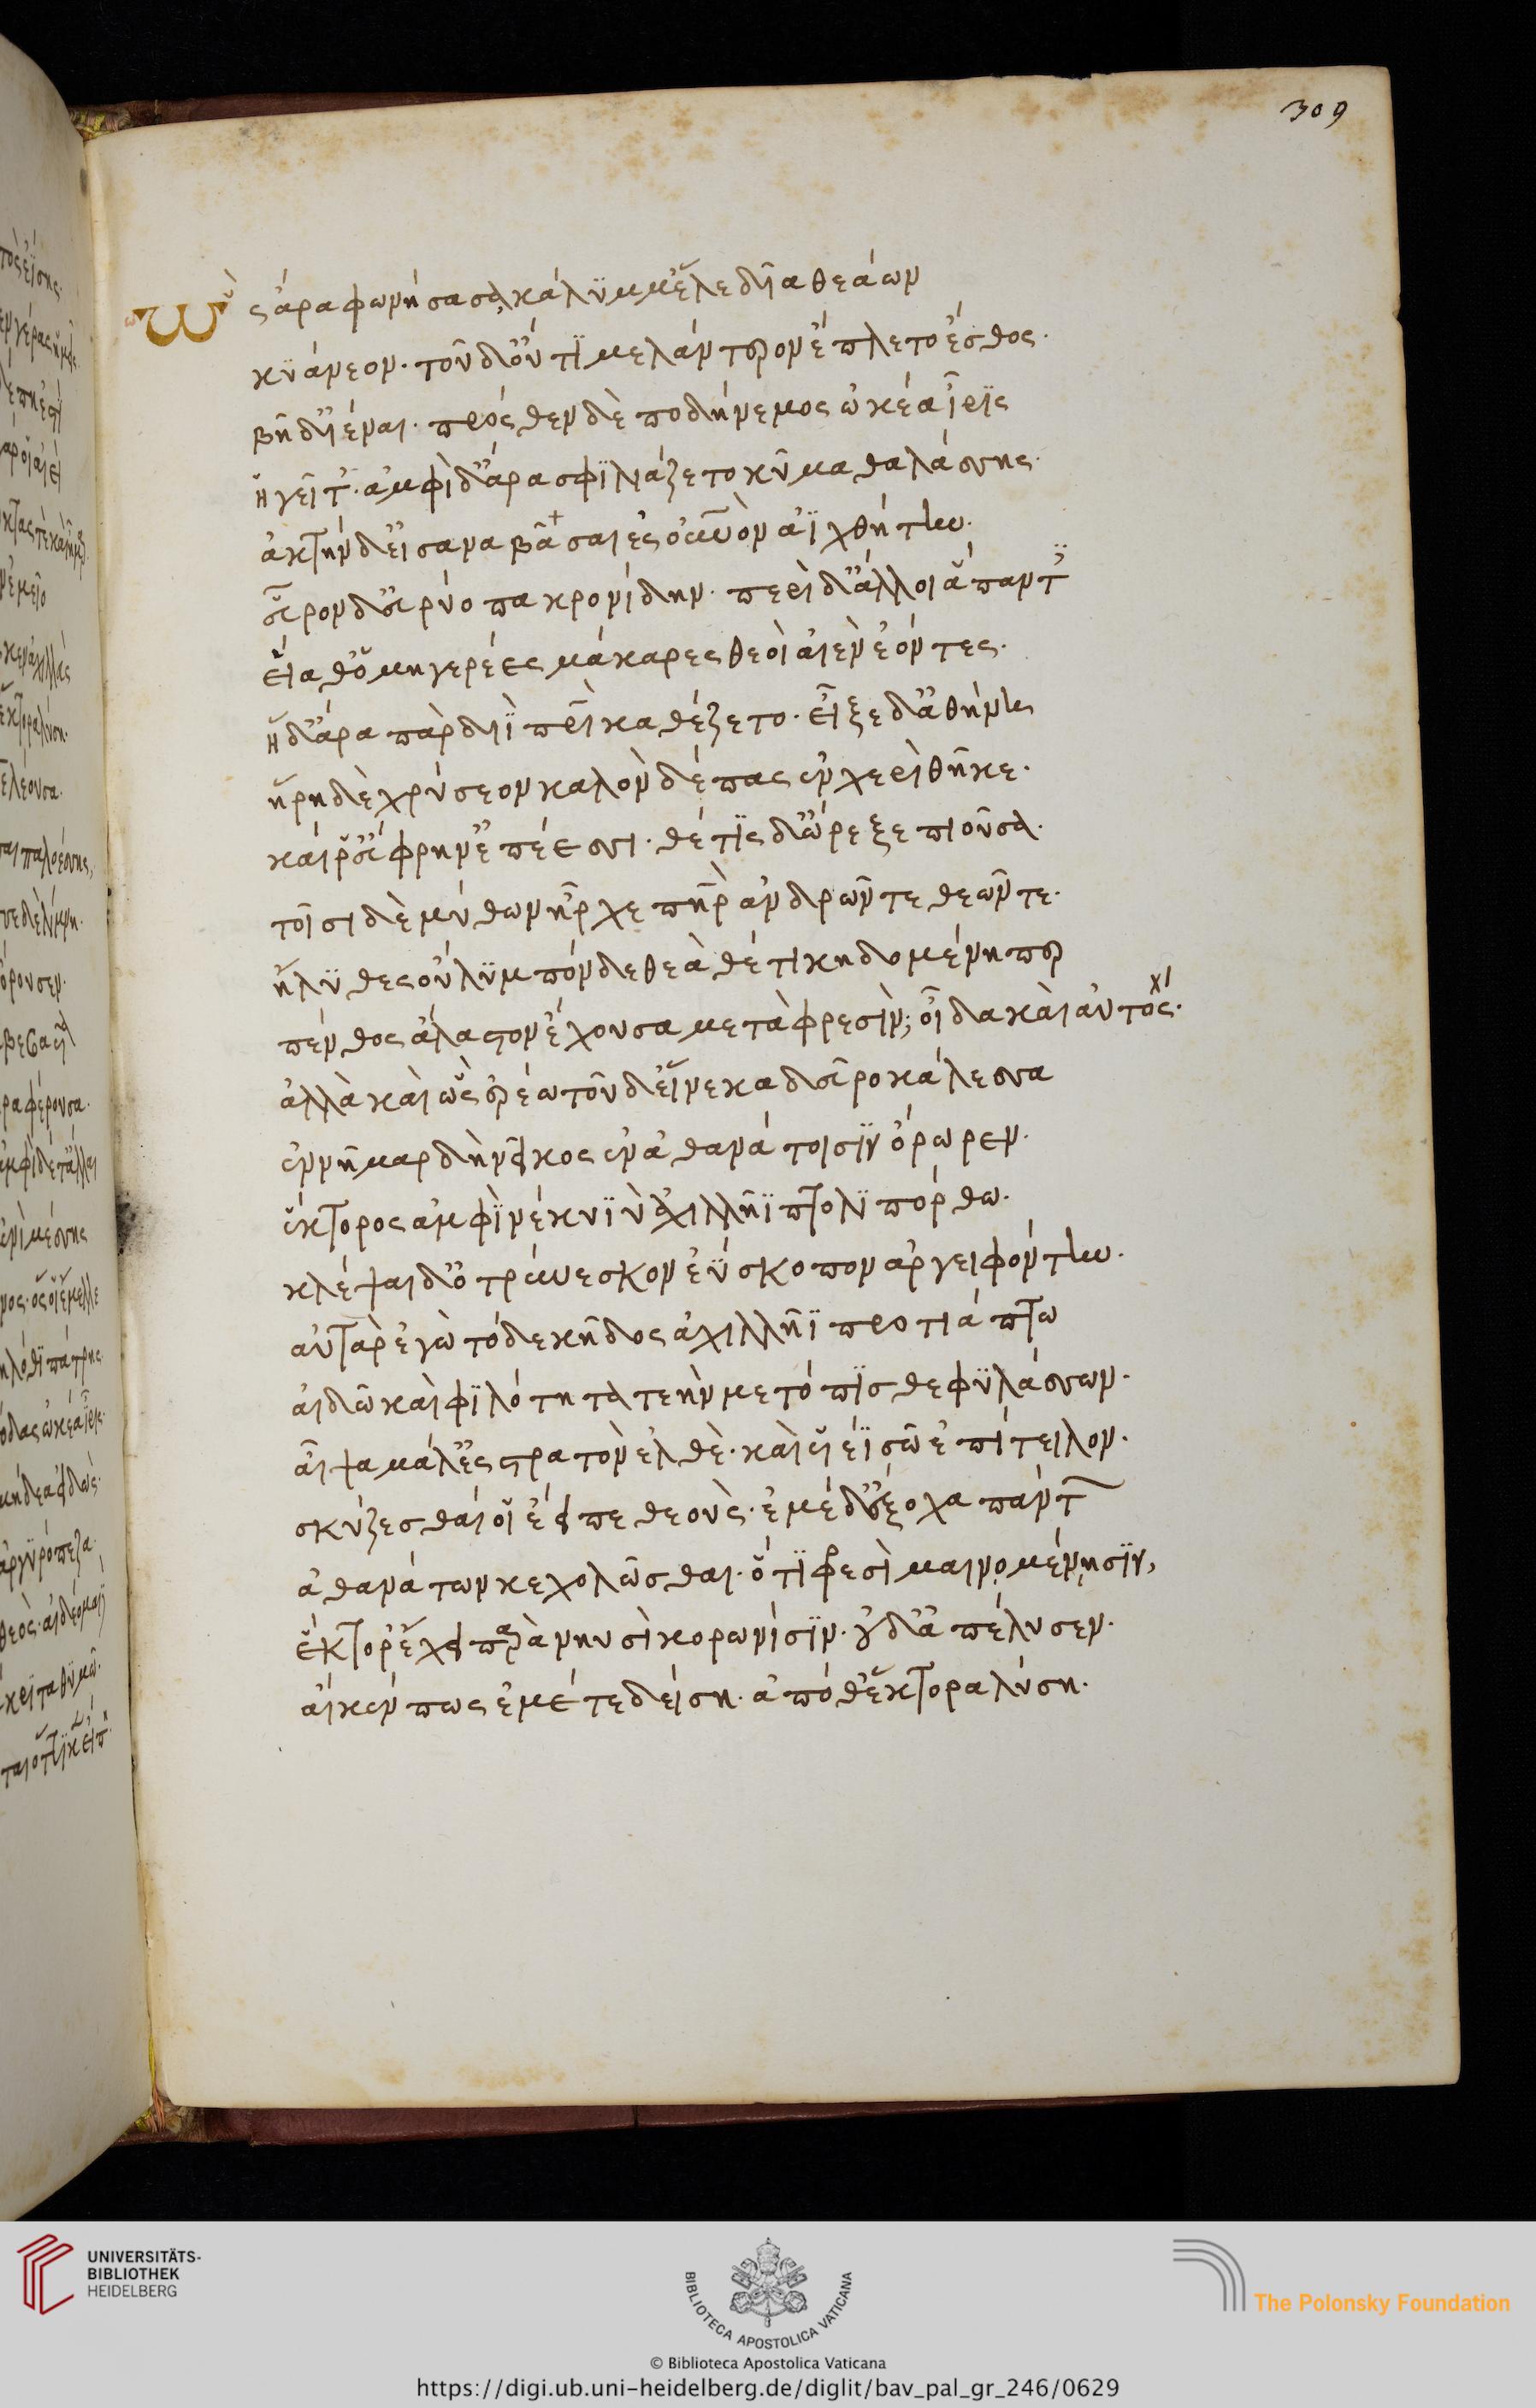 309
ὣς ἄρα φωνήσασα κάλϋμμ' ἕλε δῖα θεάων
κϋάνεον· τοῦ δ' οὔτϊ μελάντερον ἔπλετο ἔσθος·
βῆ δ' ἰέναι· πρόσθεν δὲ ποδήνεμος ὠκέα ἶρϊς
ἡγεῖτ'· ἀμφὶ δ' ἄρα σφϊ λιάζετο κῦμα θαλάσσης·
ἀκτὴν δ' εἰσαναβᾶσαι ἐς οὐρανὸν ἀϊχθήτην·
εὗρον δ' εὐρύοπα κρονίδην· περὶ δ' ἄλλοι ἅπαντ
εἵαθ' ὁμηγερέες μάκαρες θεοὶ αἰὲν ἐόντες·
ἡ δ' ἄρα πὰρ διῒ πρὶ καθέζετο· εἶξε δ' ἀθήνη
ἥρη δὲ χρύσεον καλὸν δέπας ἐν χερὶ θῆκε·
καί ῥ' εὔφρην' ἐπέεσσι· θέτϊς δ' ὤρεξε πιοῦσα·
τοῖσι δὲ μύθων ἦρχε πηρ ἀνδρῶν τε θεῶν τε·
ἤλϋθες οὔλϋμπόνδε θεὰ θέτι κηδομένη περ
πένθος ἄλαστον ἔχουσα μετὰ φρεσίν; οἶδα καὶ αὐτός·
ἀλλὰ καὶ ὣς ἐρέω τοῦ δ' εἵνεκα δεῦρο κάλεσσα
ἐννῆμαρ δὴ νεῖκος ἐν ἀθανάτοισϊν ὄρωρεν·
ἕκτορος ἀμφὶ νέκυϊ ὶ ἀχιλλῆϊ πτολϊπόρθω·
κλέψαι δ' ὀτρύνεσκον ἐΰσκοπον ἀργειφόντην·
αὐτὰρ ἐγὼ τόδε κῆδος ἀχιλλῆϊ προτιάπτω
αἰδῶ καὶ φϊλότητα τεὴν μετόπϊσθε φϋλάσσων·
αἶψα μάλ' ἐς στρατὸν ἐλθὲ· καὶ υἱέϊ σῶ ἐπίτειλον·
σκύζεσθαί οἱ εἰπὲ θεοὺς· ἐμέ δ' ἔξοχα πάντ
ἀθανάτων κεχολῶσθαι· ὅτϊ φρεσὶ μαινομένησϊν,
ἕκτορ' ἔχει παρὰ νηυσὶ κορωνίσϊν· οὐδ' ἀπέλυσεν·
αἴκέν πως ἐμέ τε δείση· ἀπό θ' ἕκτορα λύση·
UNIVERSITÄTS-
BIBLIOTHEK
HEIDELBERG
BIBLIOTECA APOSTOLICA VATICANA
The Polonsky Foundation
© Biblioteca Apostolica Vaticana
https://digi.ub.uni-heidelberg.de/diglit/bav_pal_gr_246/0629